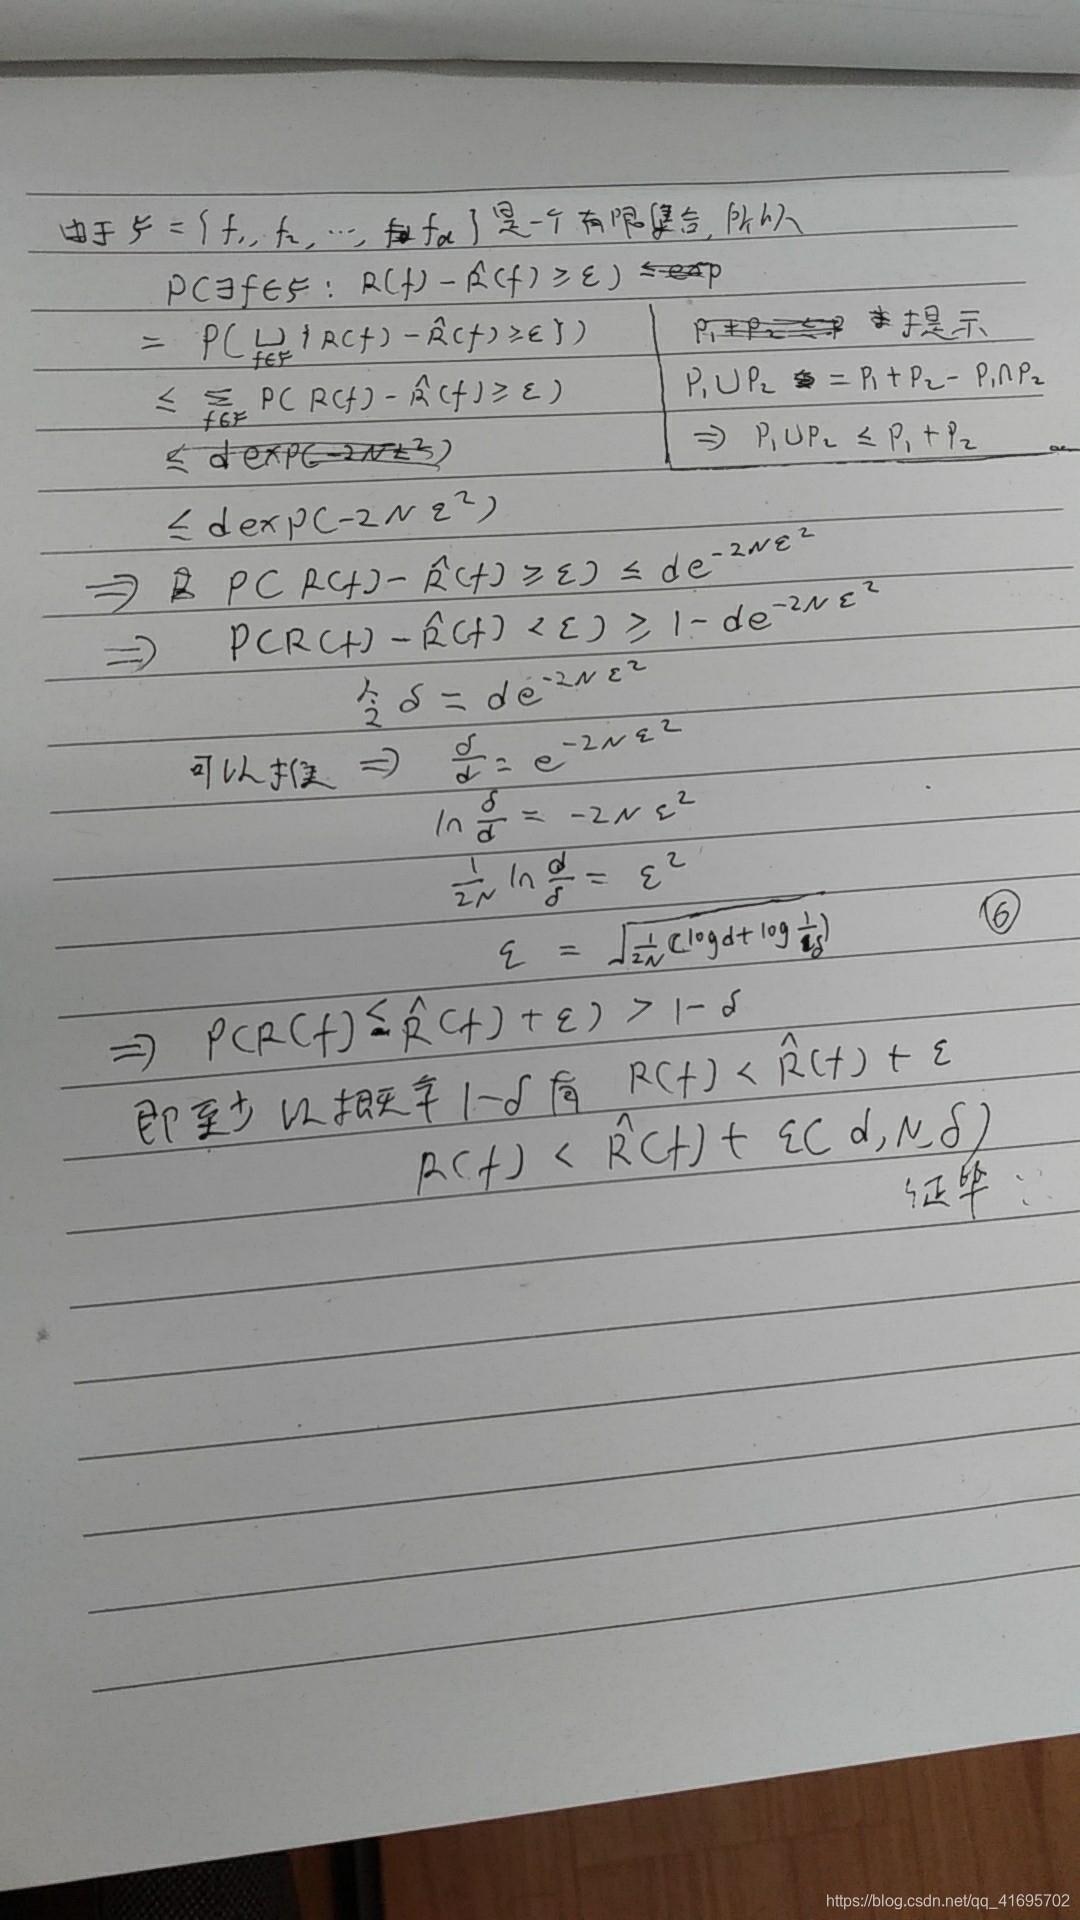 由于 𝓕 = { f₁, f₂, ..., f_d } 是一个有限集合, 所以
P(∃f∈𝓕: R(f) - R̂(f) ≥ ε) ≤ exp
= P(⋃_{f∈𝓕} { R(f) - R̂(f) ≥ ε })
≤ Σ_{f∈𝓕} P( R(f) - R̂(f) ≥ ε)
≤ d exp(-2Nε²)
≤ d exp(-2Nε²)
提示
P₁∪P₂ = P₁ + P₂ - P₁∩P₂
⇒ P₁∪P₂ ≤ P₁ + P₂
⇒ P( R(f) - R̂(f) ≥ ε) ≤ de^{-2Nε²}
⇒ P(R(f) - R̂(f) < ε) ≥ 1 - de^{-2Nε²}
令 δ = de^{-2Nε²}
可以推 ⇒ δ/d = e^{-2Nε²}
ln δ/d = -2Nε²
1/2N ln d/δ = ε²
ε = √(1/2N (log d + log 1/δ)) ⑥
⇒ P(R(f) ≤ R̂(f) + ε) > 1 - δ
即至少以概率 1-δ 有 R(f) < R̂(f) + ε
R(f) < R̂(f) + ε( d, N, δ)
证毕
https://blog.csdn.net/qq_41695702